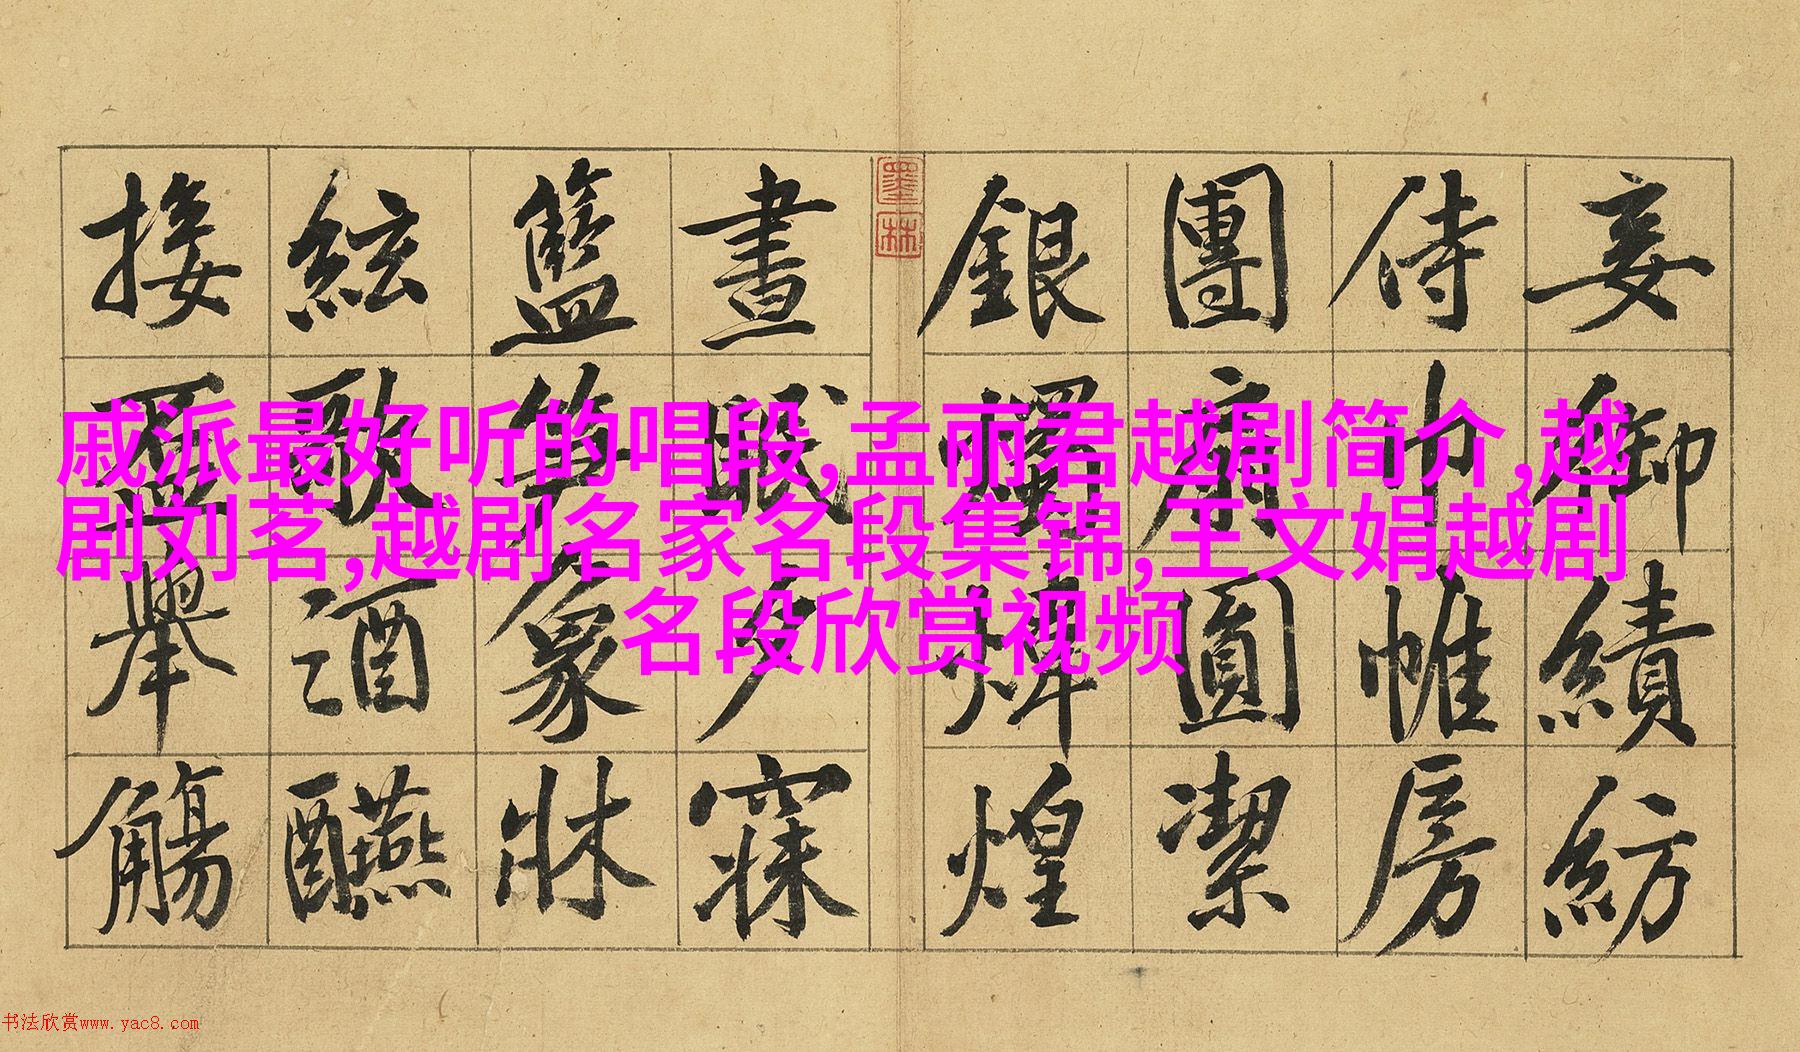 妾御績紡
侍巾帷房
團扇圓潔
銀燭煒煌
墨林
晝眠夕寐
籃笋象牀
絃歌酒醼
接盃舉觴
戚派最好听的唱段,孟丽君越剧简介,越
剧刘茗,越剧名家名段集锦,王文娟越剧
名段欣赏视频
书法欣赏www.yac8.com